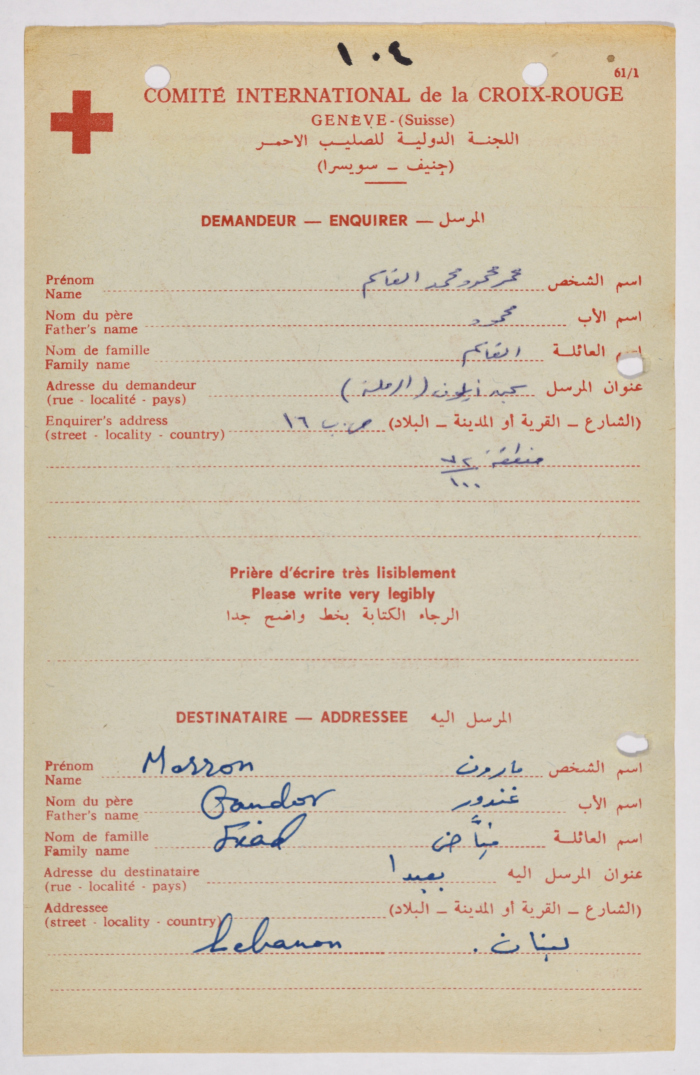 ١٠٤
61/1
COMITÉ INTERNATIONAL de la CROIX-ROUGE
GENÈVE - (Suisse)
اللجنة الدولية للصليب الاحمر
(جنيف – سويسرا)
DEMANDEUR — ENQUIRER — المرسل
Prénom
Name
اسم الشخص محمود محمد القاسم
Nom du père
Father's name
اسم الأب محمود
Nom de famille
Family name
اسم العائلة القاسم
Adresse du demandeur
(rue - localité - pays)
عنوان المرسل (الرملة)
Enquirer's address
(street - locality - country)
(الشارع – القرية أو المدينة – البلاد) ص.ب ١٦
منطقة ٧٢
١٠٠
Prière d'écrire très lisiblement
Please write very legibly
الرجاء الكتابة بخط واضح جدا
DESTINATAIRE — ADDRESSEE المرسل اليه
Prénom
Name
Marron
اسم الشخص مارون
Nom du père
Father's name
Gandor
اسم الأب غندور
Nom de famille
Family name
اسم العائلة
Adresse du destinataire
(rue - localité - pays)
عنوان المرسل اليه بعبدا
Addressee
(street - locality - country)
(الشارع – القرية أو المدينة – البلاد)
Lebanon لبنان .